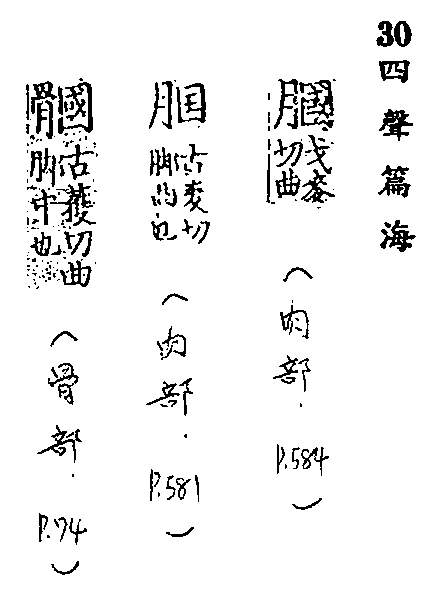 30 四聲篇海
膕 戈麥切曲 (肉部.P.584)
古麥切脚也 (肉部.P.581)
古獲切曲脚中也 (骨部.P.74)